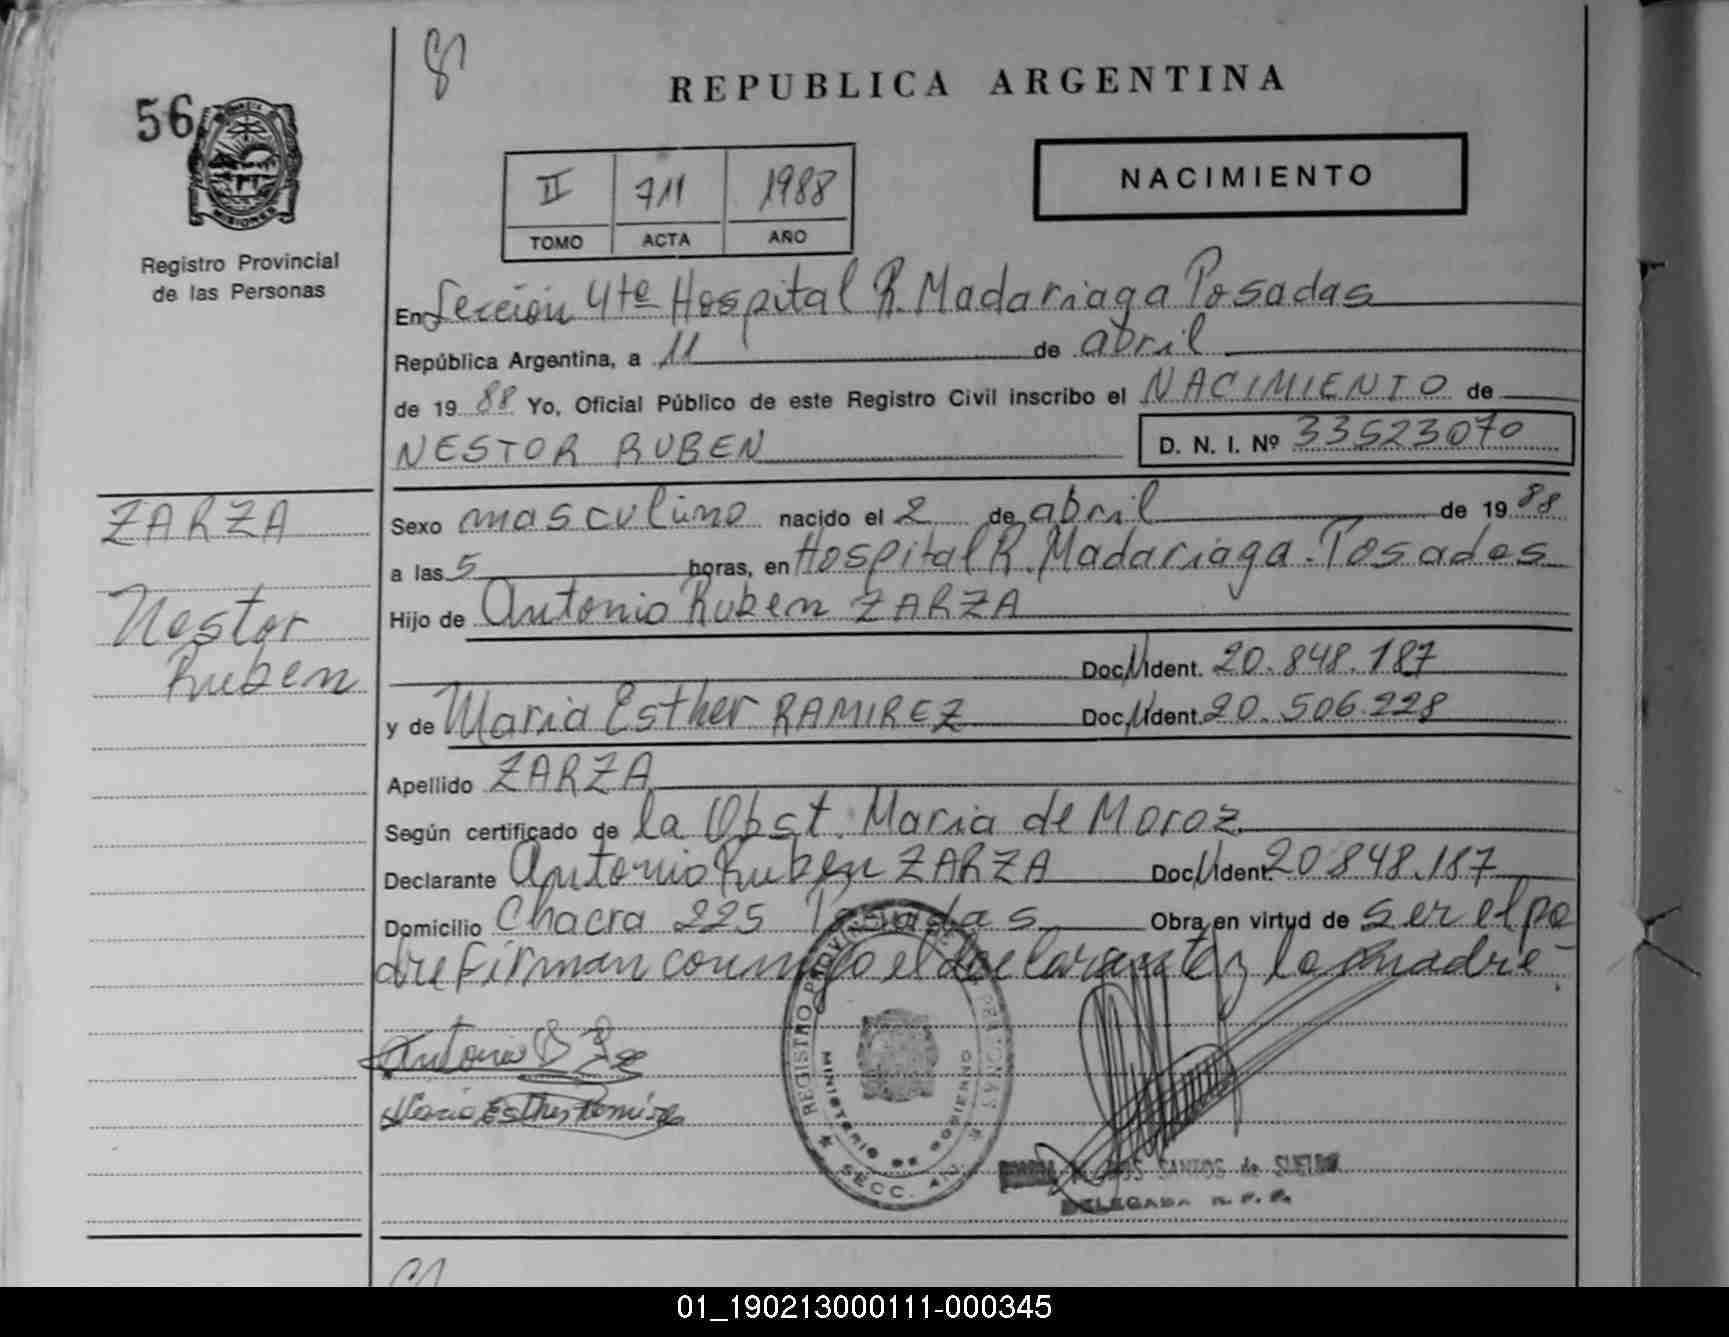 REPUBLICA ARGENTINA
56
MISIONES
Registro Provincial
de las Personas
II 711 1988
TOMO ACTA AÑO
NACIMIENTO
En Sección 4ta Hospital R. Madariaga Posadas
República Argentina, a 11 de abril
de 19 88 Yo, Oficial Público de este Registro Civil inscribo el NACIMIENTO de
NESTOR RUBEN D. N. I. Nº 33523070
ZARZA
Nestor
Ruben
Sexo masculino nacido el 2 de abril de 19 88
a las 5 horas, en Hospital R. Madariaga. Posadas
Hijo de Antonio Ruben ZARZA
Doc. Ident. 20.848.187
y de Maria Esther RAMIREZ Doc. Ident. 20.506.228
Apellido ZARZA
Según certificado de la Obst. Maria de Moroz
Declarante Antonio Ruben ZARZA Doc. Ident. 20848.187
Domicilio Chacra 225 Posadas Obra en virtud de ser el pa
dre Firman conmigo el declarante y la madre
Antonio
Maria Esther Ramirez
REGISTRO PROVINCIAL DE LAS PERSONAS
MINISTERIO DE GOBIERNO
SECC. 4ta
SANTOS de
DELEGADA R. P. P.
01_190213000111-000345